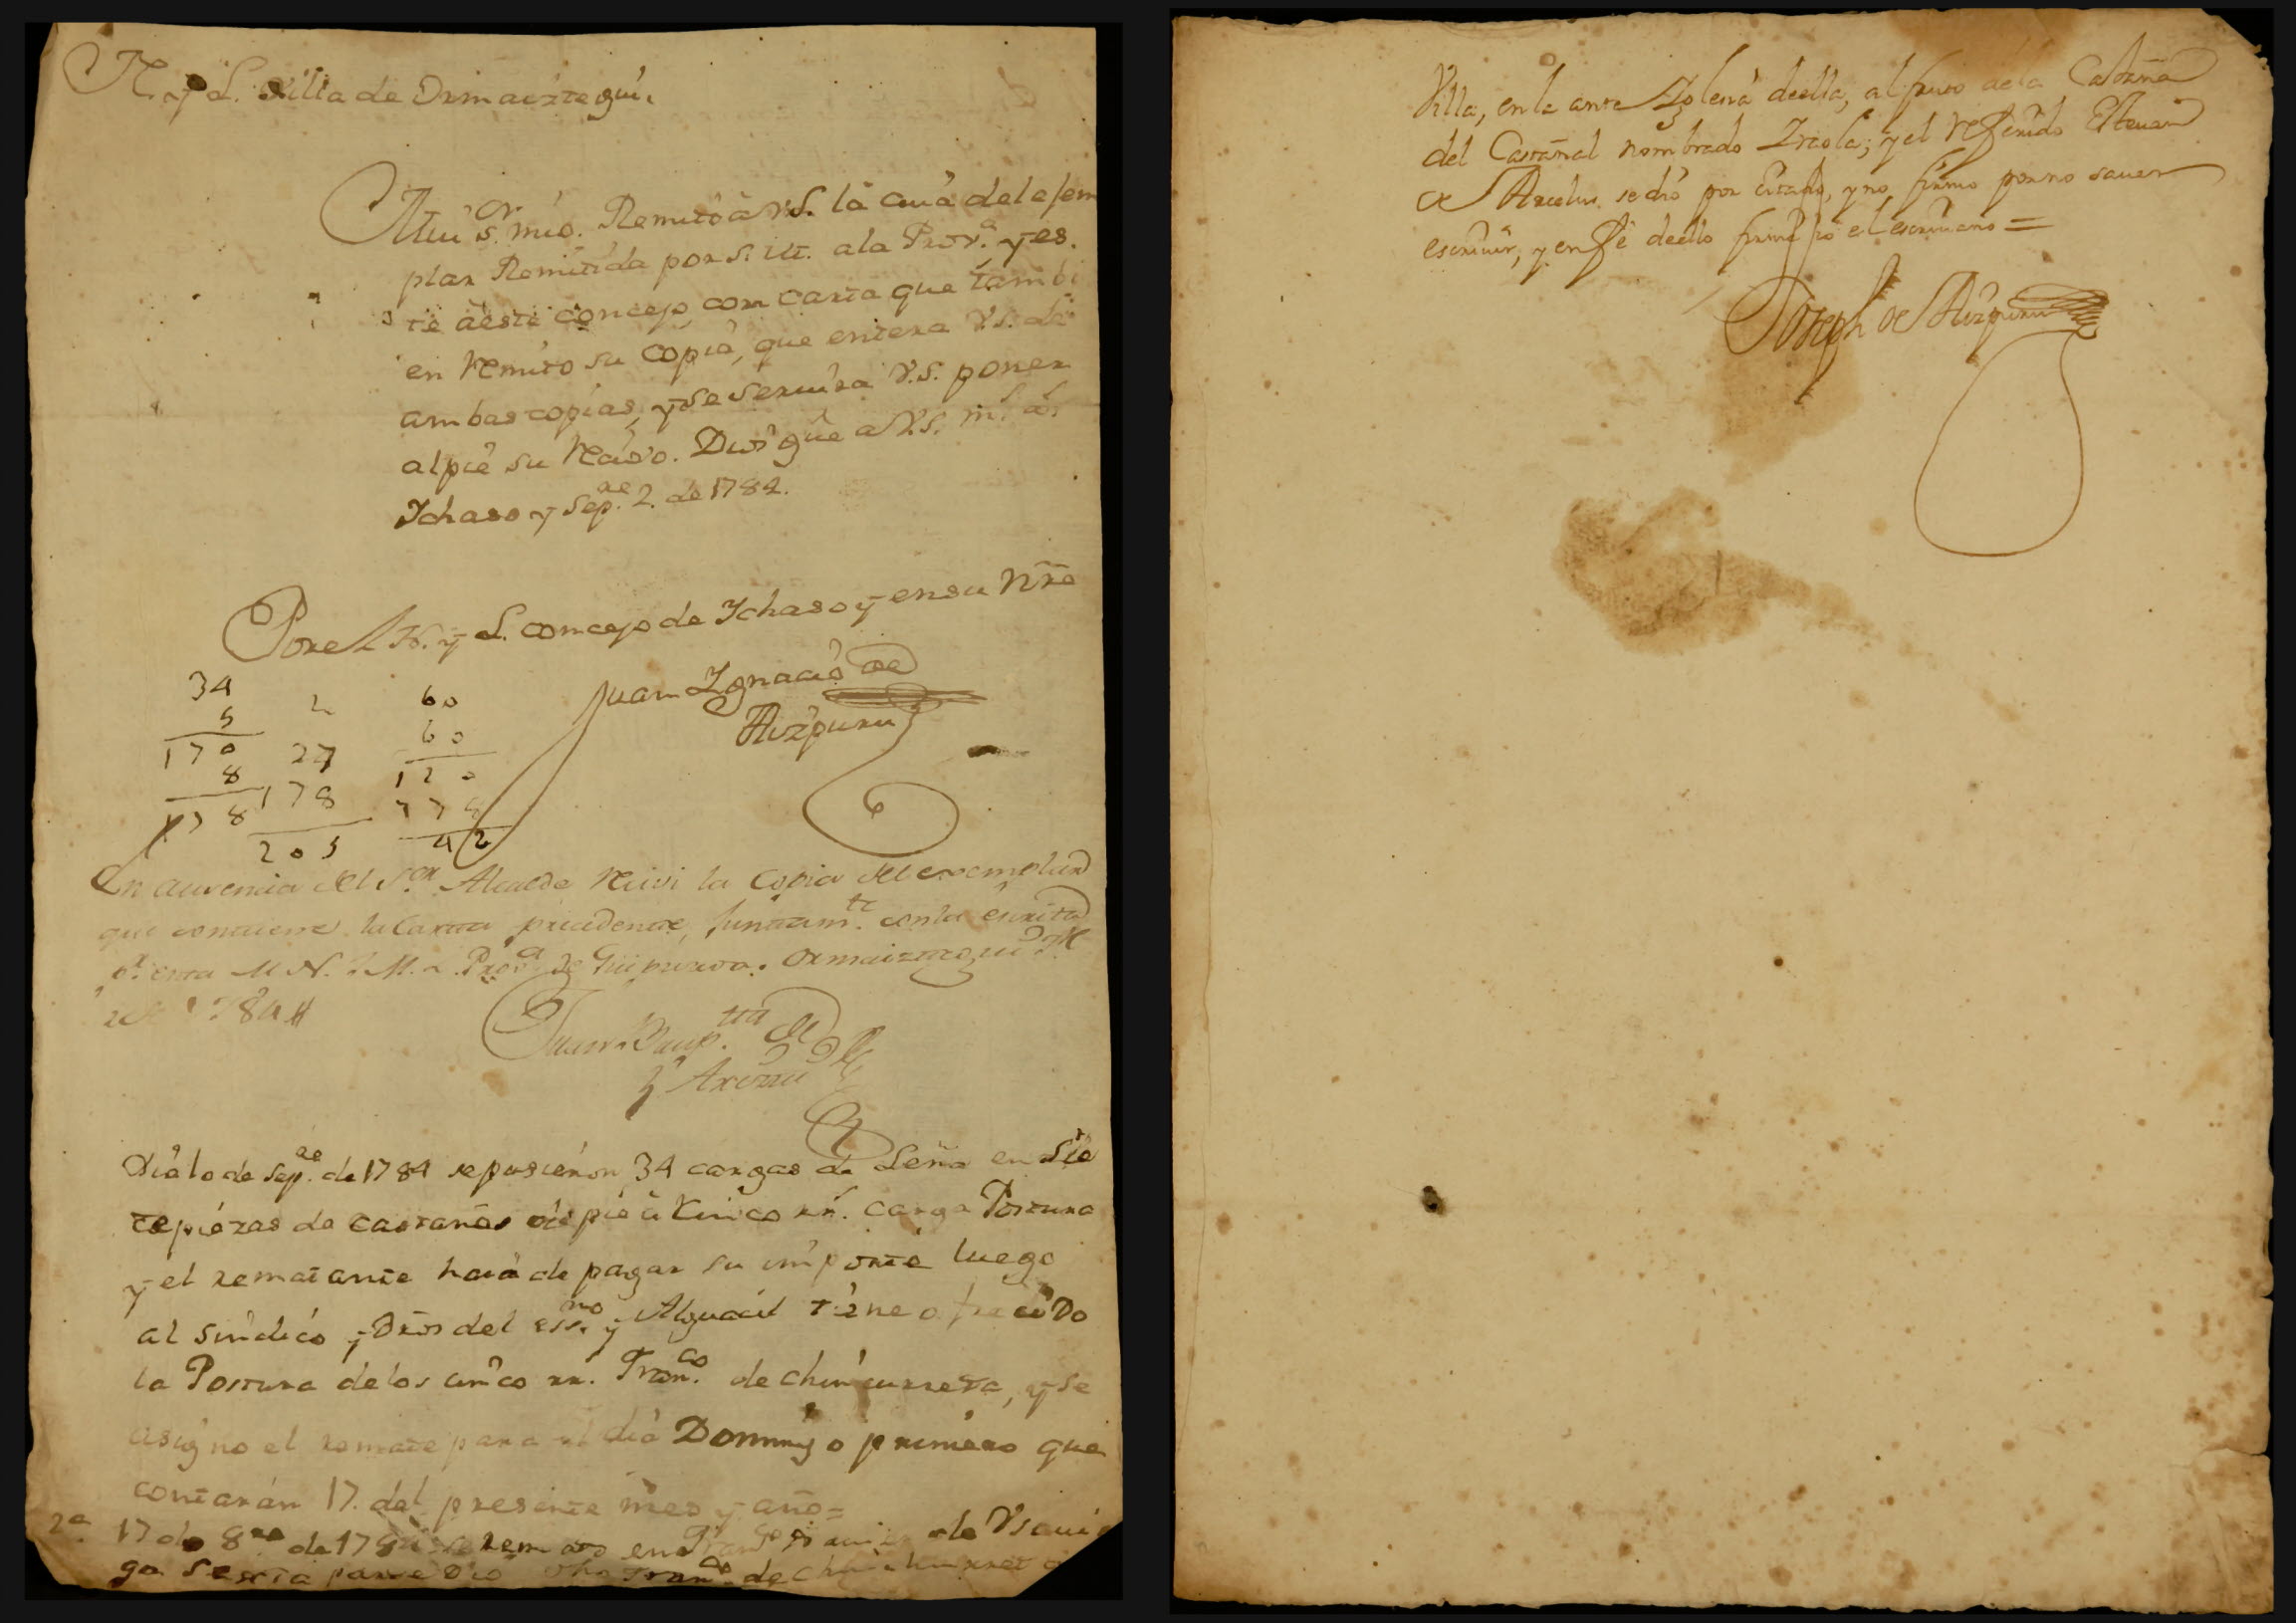 N. y L. Villa de Ormaeztegui.
Mui S.or mio. Remito à V.S. la
plar Remitida por S. M. ala Prov.a y es.
te à este concejo con carta que tambi
en Remito su copia, que entera V.S. de
ambas copias, y se seruira V.S. poner
al pie su Reciuo. Dios gûe a V.S. m.s a.s
Ichaso y Sep.re 2. de 1784.
Por el N. y L. concejo de Ichaso y en su Nre
Juan Ignacio de
Aizpuru
34
5
170
8
178
2
27
178
205
60
60
120
178
42
En ausencia del S.or Alcalde Reciui la Copia del exemplar
que contiene la Carta precedente, juntam.te con la escrita
p.r esta M. N. y M. L. Prov.a de Guipuzcoa. Ormaiztegui
1784
Juan Baup.tta de
Arizti
Dia 10 de Sep.re de 1784 se pusieron 34 cargas de Leña en Sie
te piezas de castaños de pie à cinco rr.s carga Postura
y el rematante haia de pagar su importe luego
al sindico, y Dros del ess.no y Alguacil tiene ofrecido
la Postura de los cinco rr. Fran.co de Chinchurreta, y se
asigno el remate para el dia Domingo primero que
contarán 17. del presente mes y año=
17 de 8.re de 1784 se remato en Fran.co Xauier de Vsaui
ga Sestia parte Dio dho Fran.co de Chinchurreta
Villa, en la ante Iglesia de ella, al fruto de la Castaña
del Castañal nombrado Iraola; y el referido Esteuan
de Arcelus se dió por Citado, y no firmó por no sauer
escriuir, y en fe de ello firmé yo el escriuano =
Joseph de Aizpuru